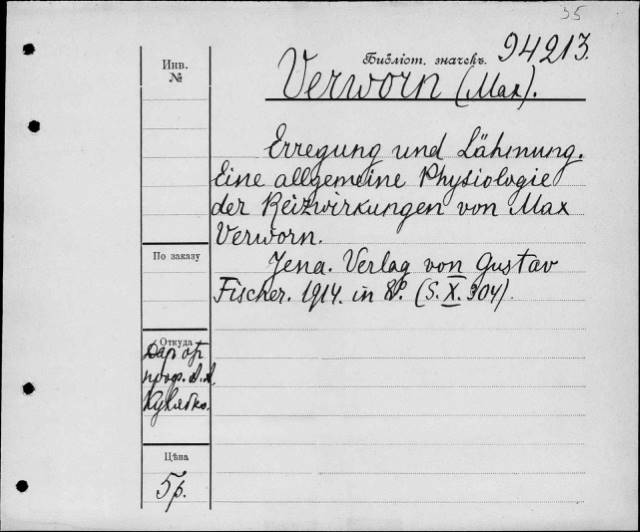 35
Инв.
№
Библіот. значекъ. 94213.
Verworn (Max).
Erregung und Lähmung.
Eine allgemeine Physiologie
der Reizwirkungen von Max
Verworn.
По заказу
Jena. Verlag von Gustav
Fischer. 1914. in 8º. (S. X. 304).
Откуда
Дар от
проф. А. А.
Кулябко.
Цѣна
5 р.